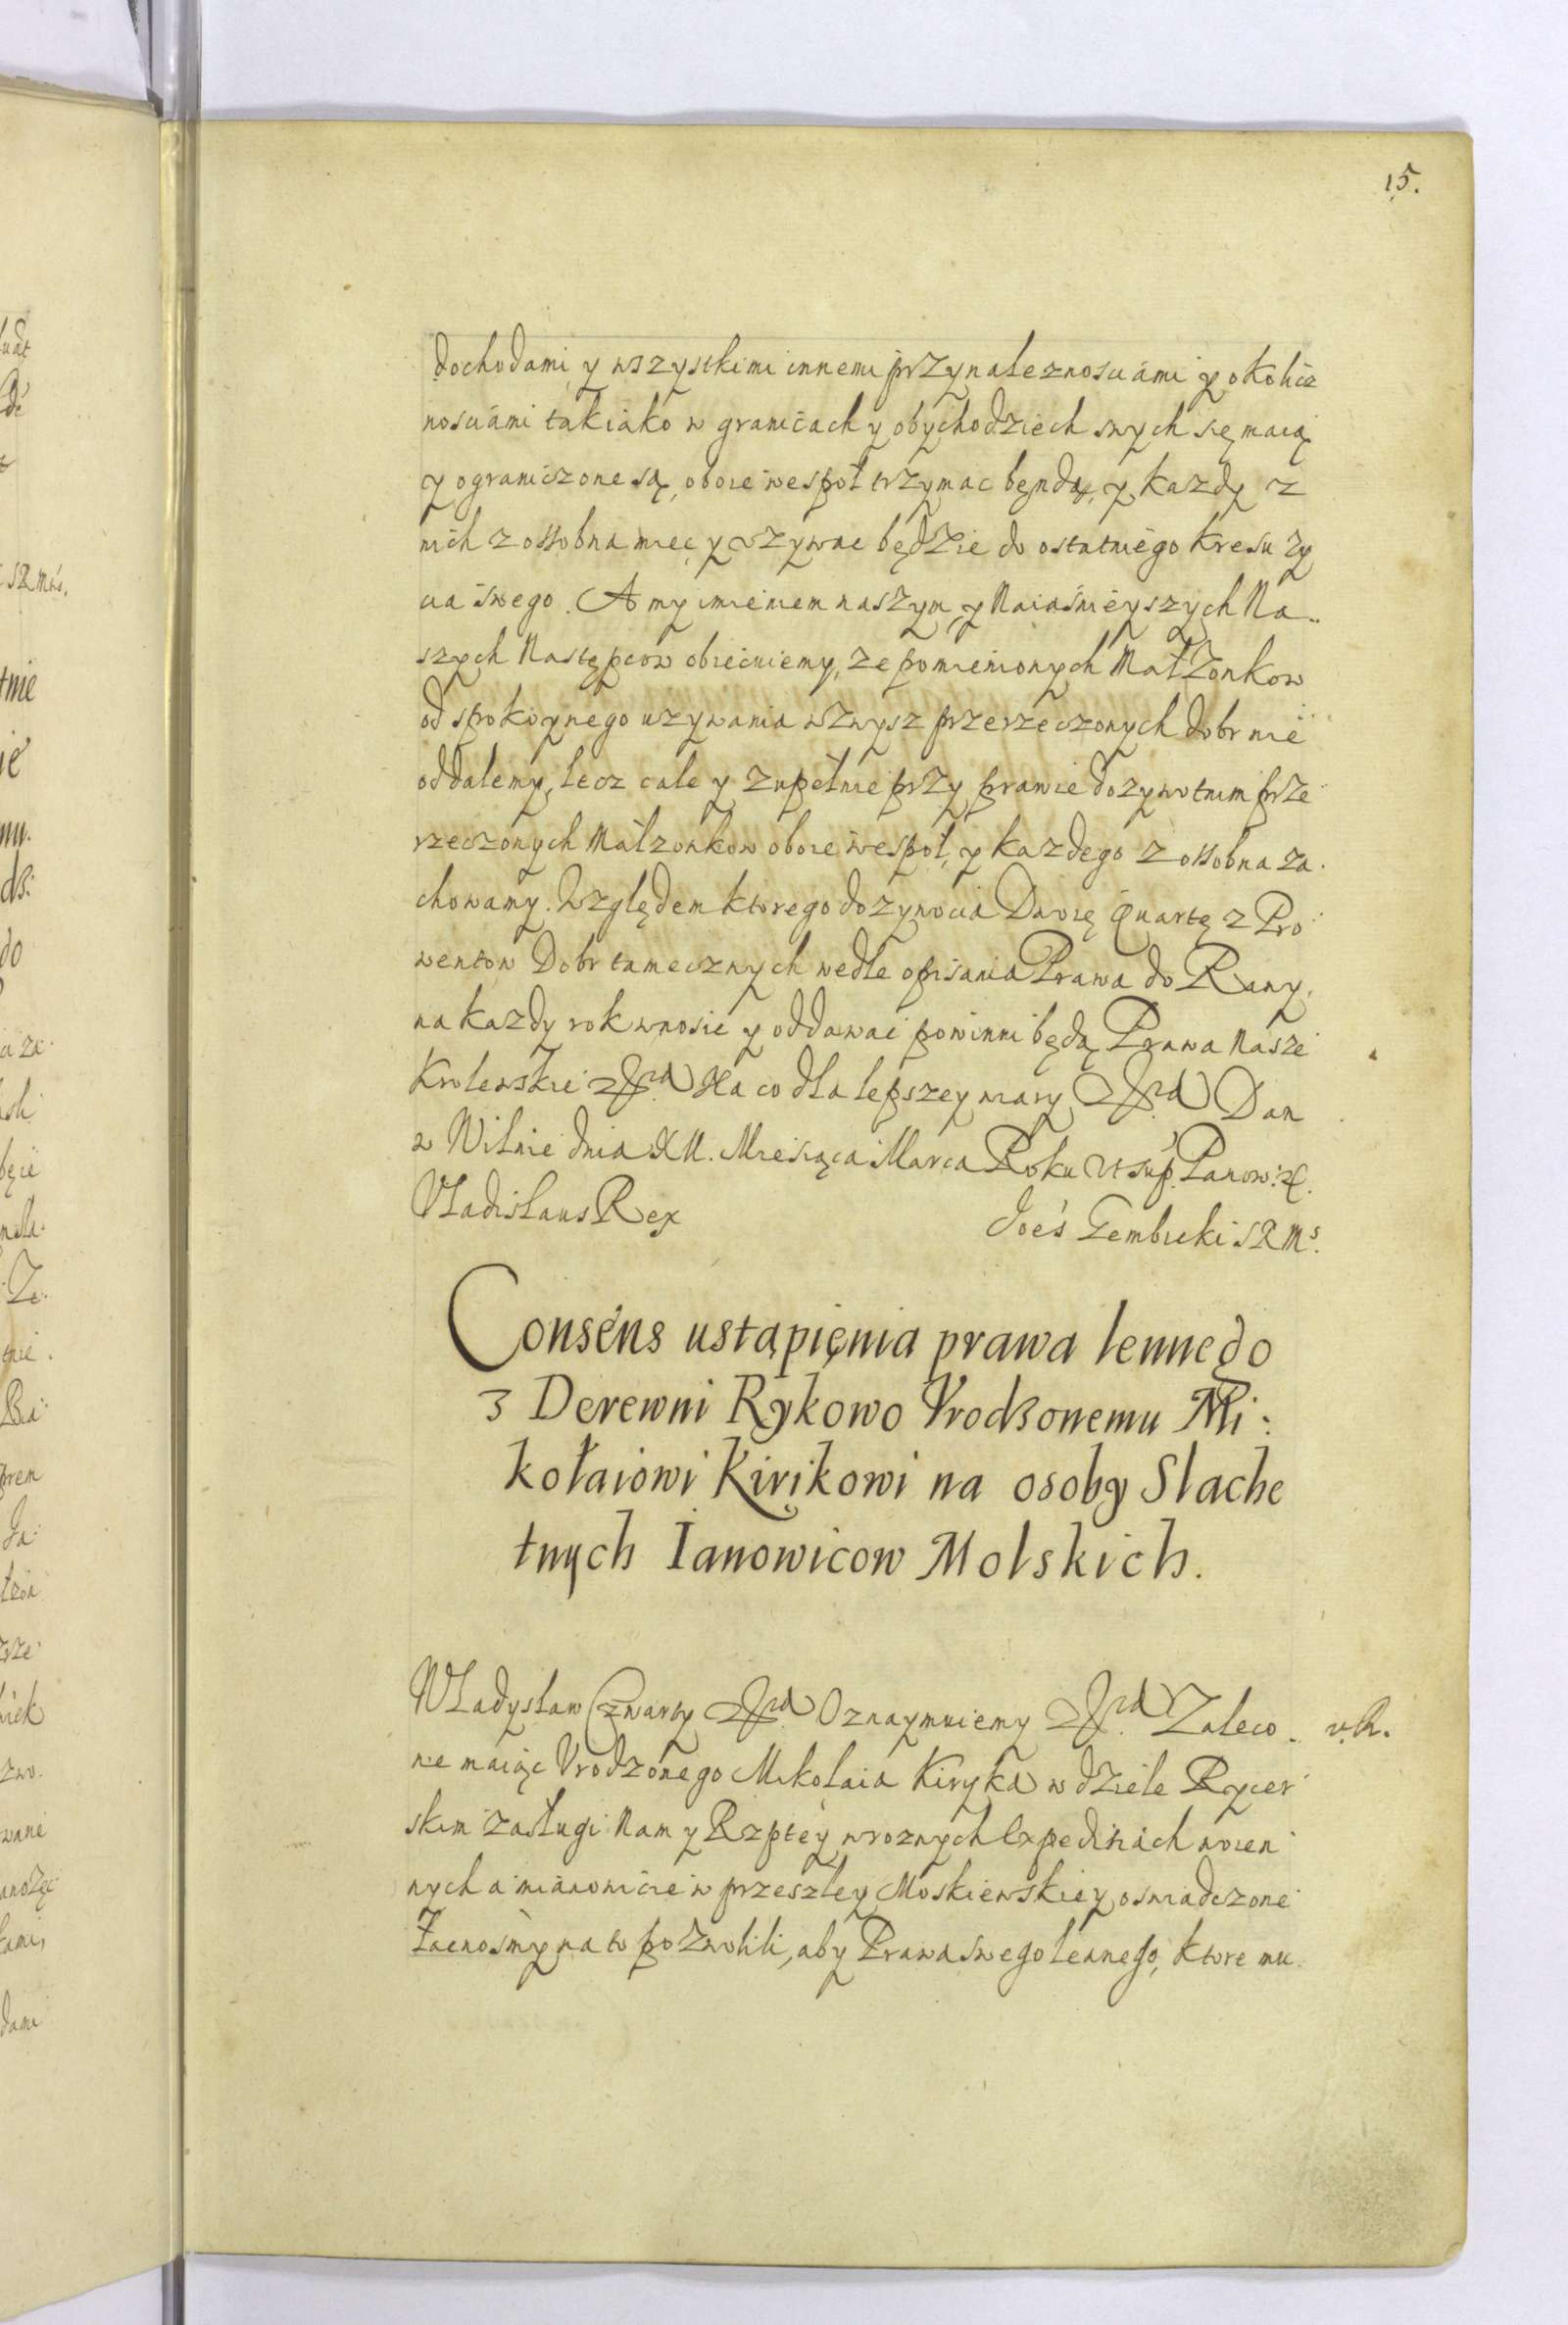 15.
dochodami y wszystkimi innemi przynaleznosciámi y okolicz
nosciámi tak iáko w granicach y obychodziech swych się maią
y ograniczone są, oboie wespoł trzymac będą, y kazdy z
nich z ossobna miec y vzywac będzie do ostatniego kresu zy
cia swego. A my imieniem naszym y Naiaśnieyszych Na..
szych Następcow obiecuiemy, ze pomienionych Małzonkow
od spokoynego uzywania wzwysz przerzeczonych dobr nie
oddalemy, lecz cale y zupełnie przy prawie dozywotnim prze
rzeczonych Małzonkow oboie wespoł, y kazdego z ossobna za.
chowamy. Względem ktorego dozywocia Dwoię Quartę z Pro
wentow Dobr tamecznych wedle opisania Prawa do Rawy,
na kazdy rok wnosic y oddawac powinni będą Prawa Nasze
Krolewskie Na co dla lepszey wiary Dan
w Wilnie dnia XII. Miesiąca Marca Roku Vt sup. Panow: &.
Vladislaus Rex
Joes Gembicki S R Ms.
Consens ustąpięnia prawa lennego
z Derewni Rykowo Vrodzonemu Mi:
kołaiowi Kirikowi na osoby Slache
tnych Ianowicow Molskich.
Władysław Czwarty Oznaymuiemy Zaleco.
ne maiąc Vrodzonego Mikołaia Kiryka w dziele Rycer
skim zasługi Nam y Rzptey w roznych Expeditiach woien
nych a mianowicie w przeszłey Moskiewskiey oswiadczone
Łacnosmy na to pozwolili, aby Prawa swego leanego, ktore mu